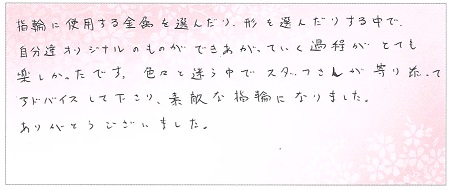 指輪に使用する金属を選んだり、形を選んだりする中で、
自分達オリジナルのものができあがっていく過程がとても
楽しかったです。色々と迷う中でスタッフさんが寄り添って
アドバイスして下さり、素敵な指輪になりました。
ありがとうございました。